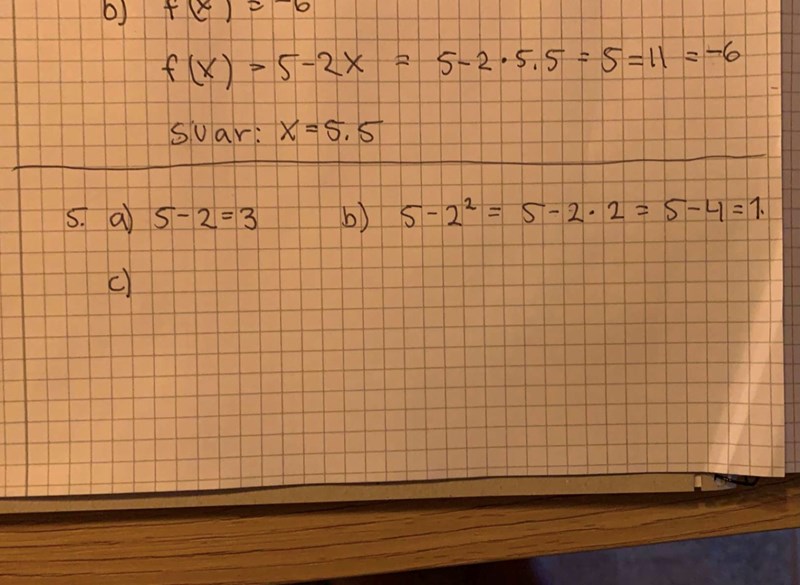 b) f(x) = -6
f(x) = 5-2x = 5-2·5.5 = 5=11 = -6
svar: x=5.5
5. a) 5-2=3 b) 5-2² = 5-2·2 = 5-4=1.
c)